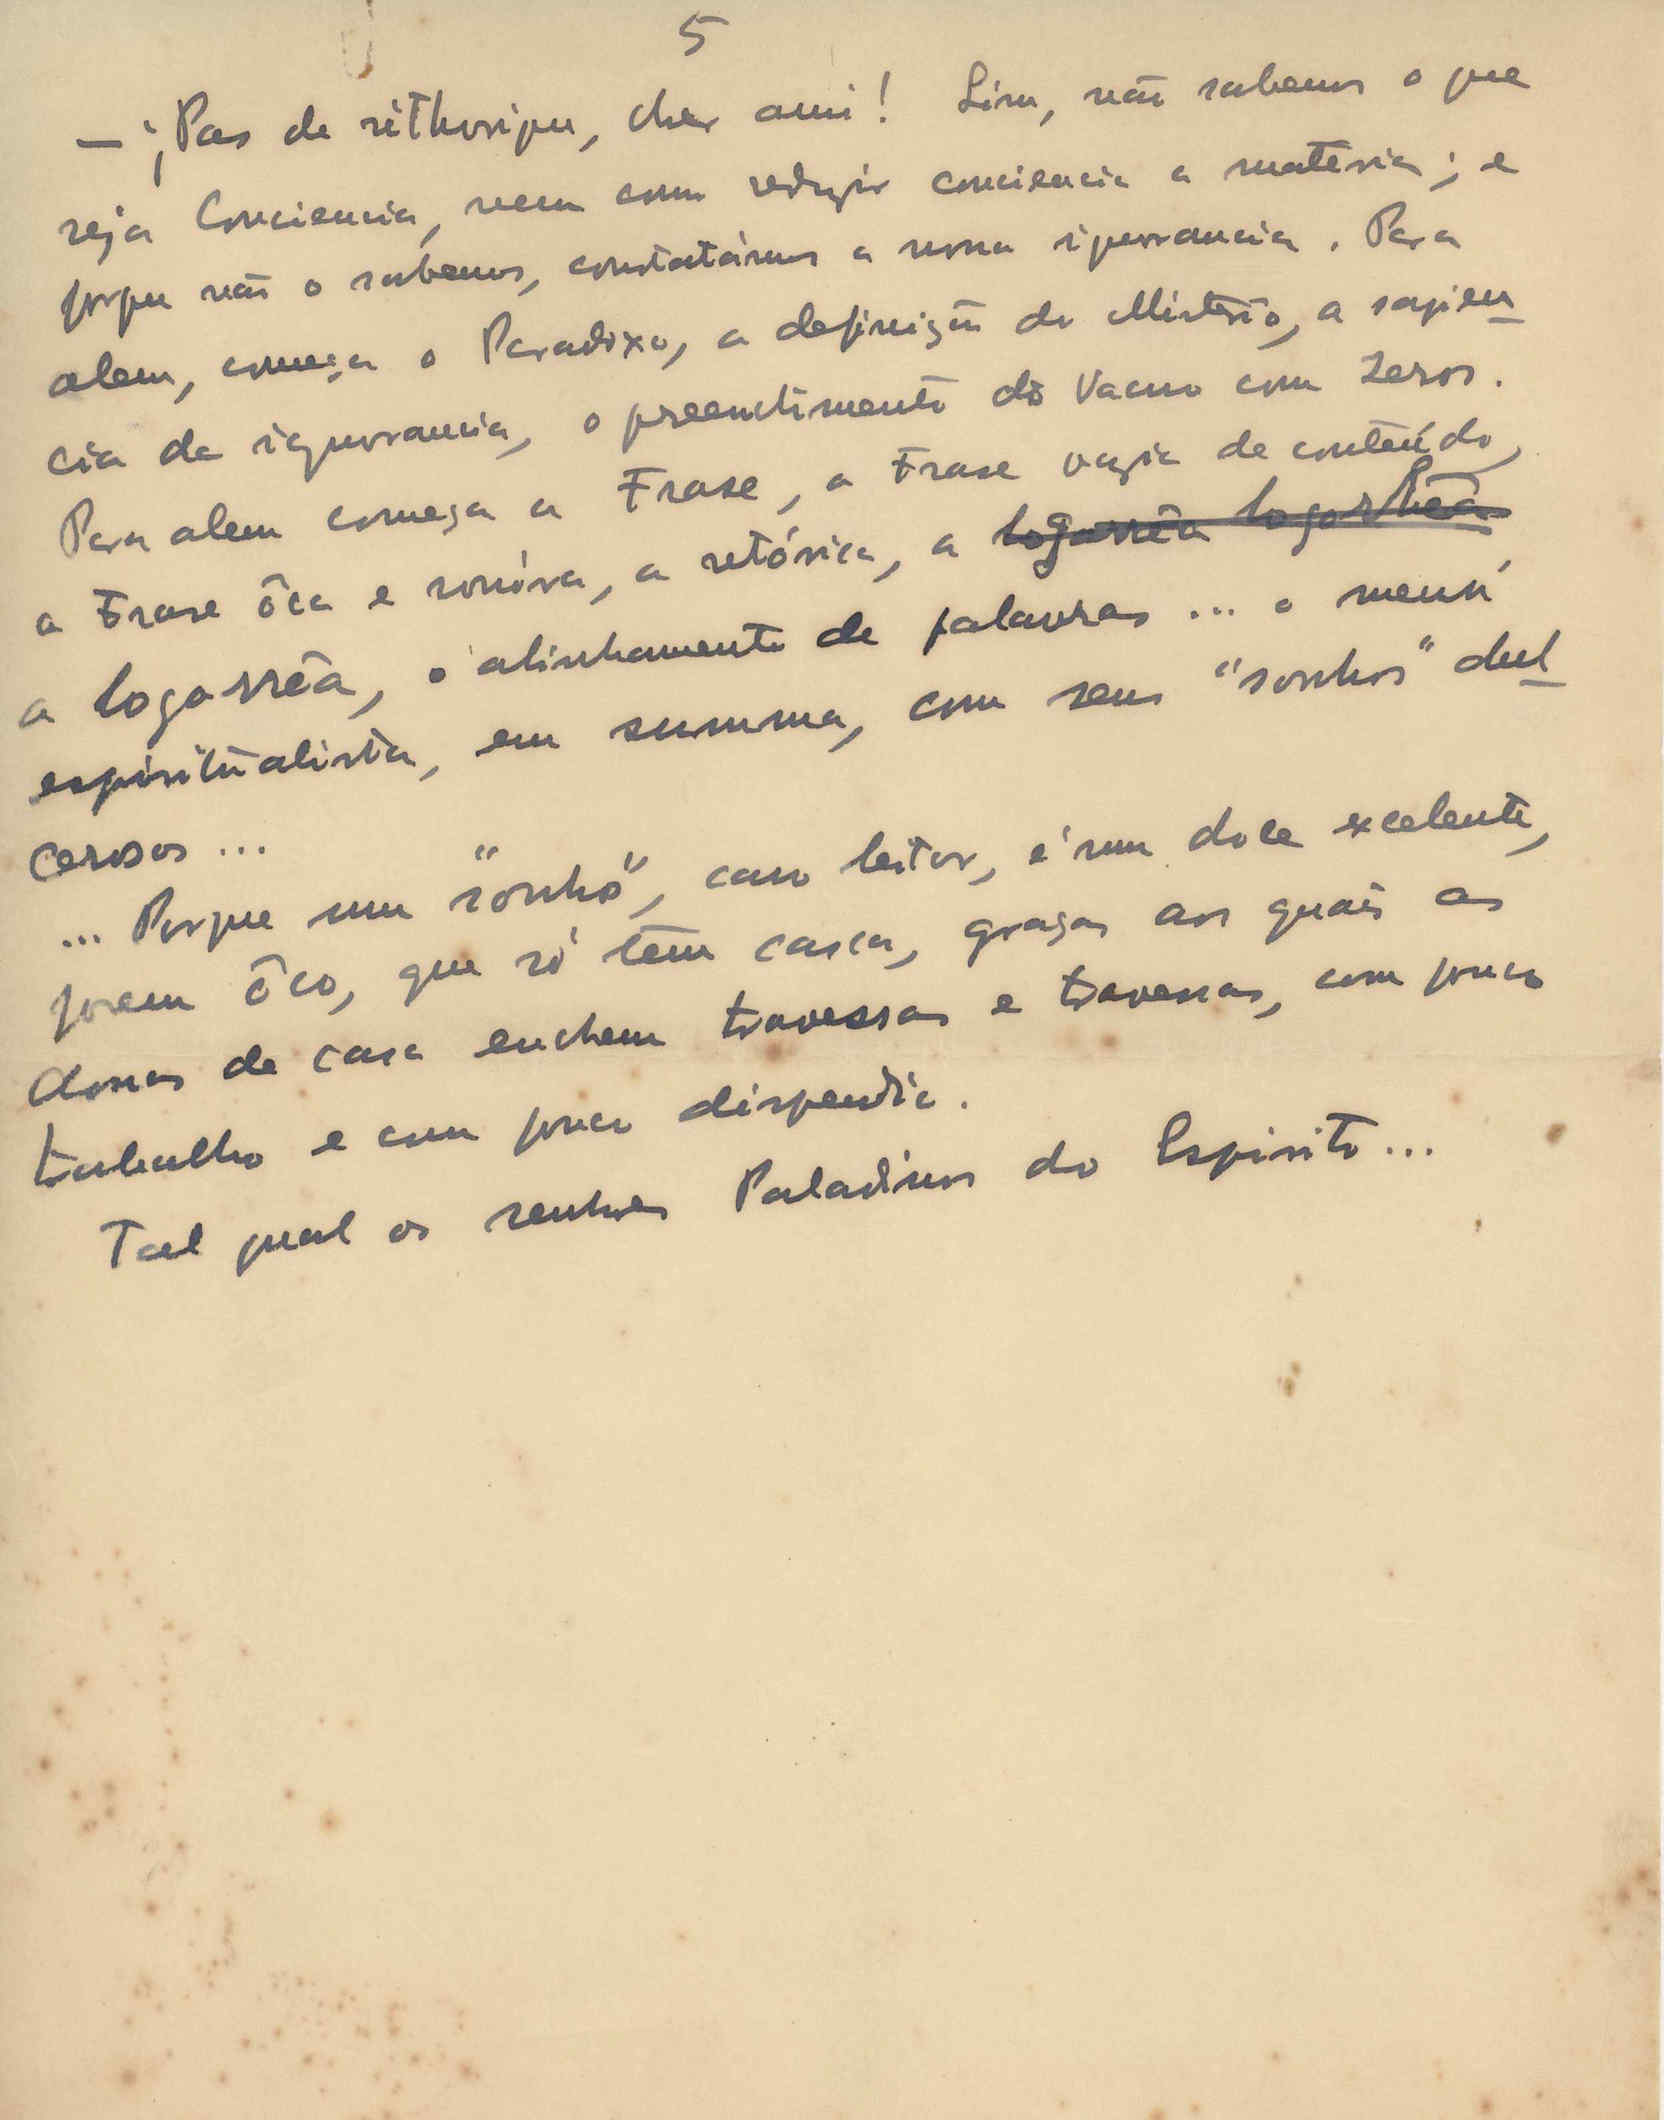 5
— ¡Pas de réthorique, cher ami! Sim, não sabemos o que
seja Conciencia, nem como reduzir conciencia a matéria; e
porque não o sabemos, constatámos a nossa ignorancia. Para
alem, começa o Paradoxo, a definição do Mistério, a sapien
cia da ignorancia, o preenchimento do Vacuo com Zeros.
Para alem começa a Frase, a Frase vazia de conteúdo,
a Frase ôca e sonóra, a retórica, a logorrêa logorrhêa
a logorrêa, o alinhamento de palavras ... o menú
espiritualista, em summa, com seus "sonhos" dul
cerosos ...
... Porque um "sonho", caro leitor, é um doce excelente,
porem ôco, que só têm casca, graças aos quais as
donas de casa enchem travessas e travessas, com pouco
trabalho e com pouco dispendio.
Tal qual os senhores Paladinos do Espirito ...